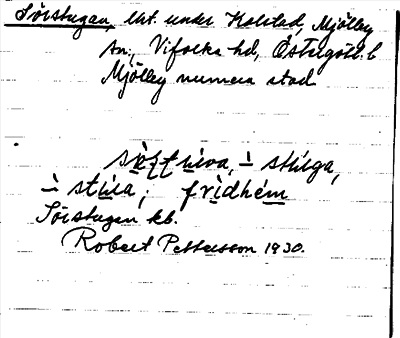 Sörstugan, lht. under Holsted, Mjölby
sn., Vifolka hd, Östergötl. l
Mjölby numera stad
stúga,
fridhem
Sörstugan kb.
Robert Pettersson 1930.